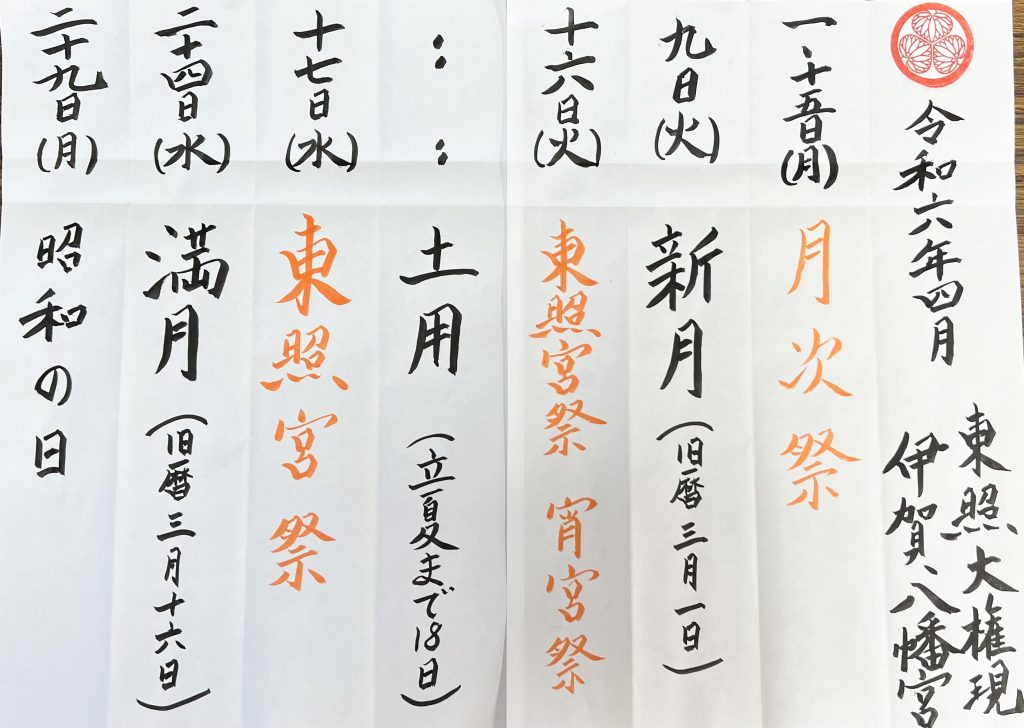 令和六年四月
東照大権現
伊賀八幡宮
一、十五日(月) 月次祭
九日(火) 新月 (旧暦三月一日)
十六日(火) 東照宮祭 宵宮祭
〃 〃 土用 (立夏まで18日)
十七日(水) 東照宮祭
二十四日(水) 満月 (旧暦三月十六日)
二十九日(月) 昭和の日